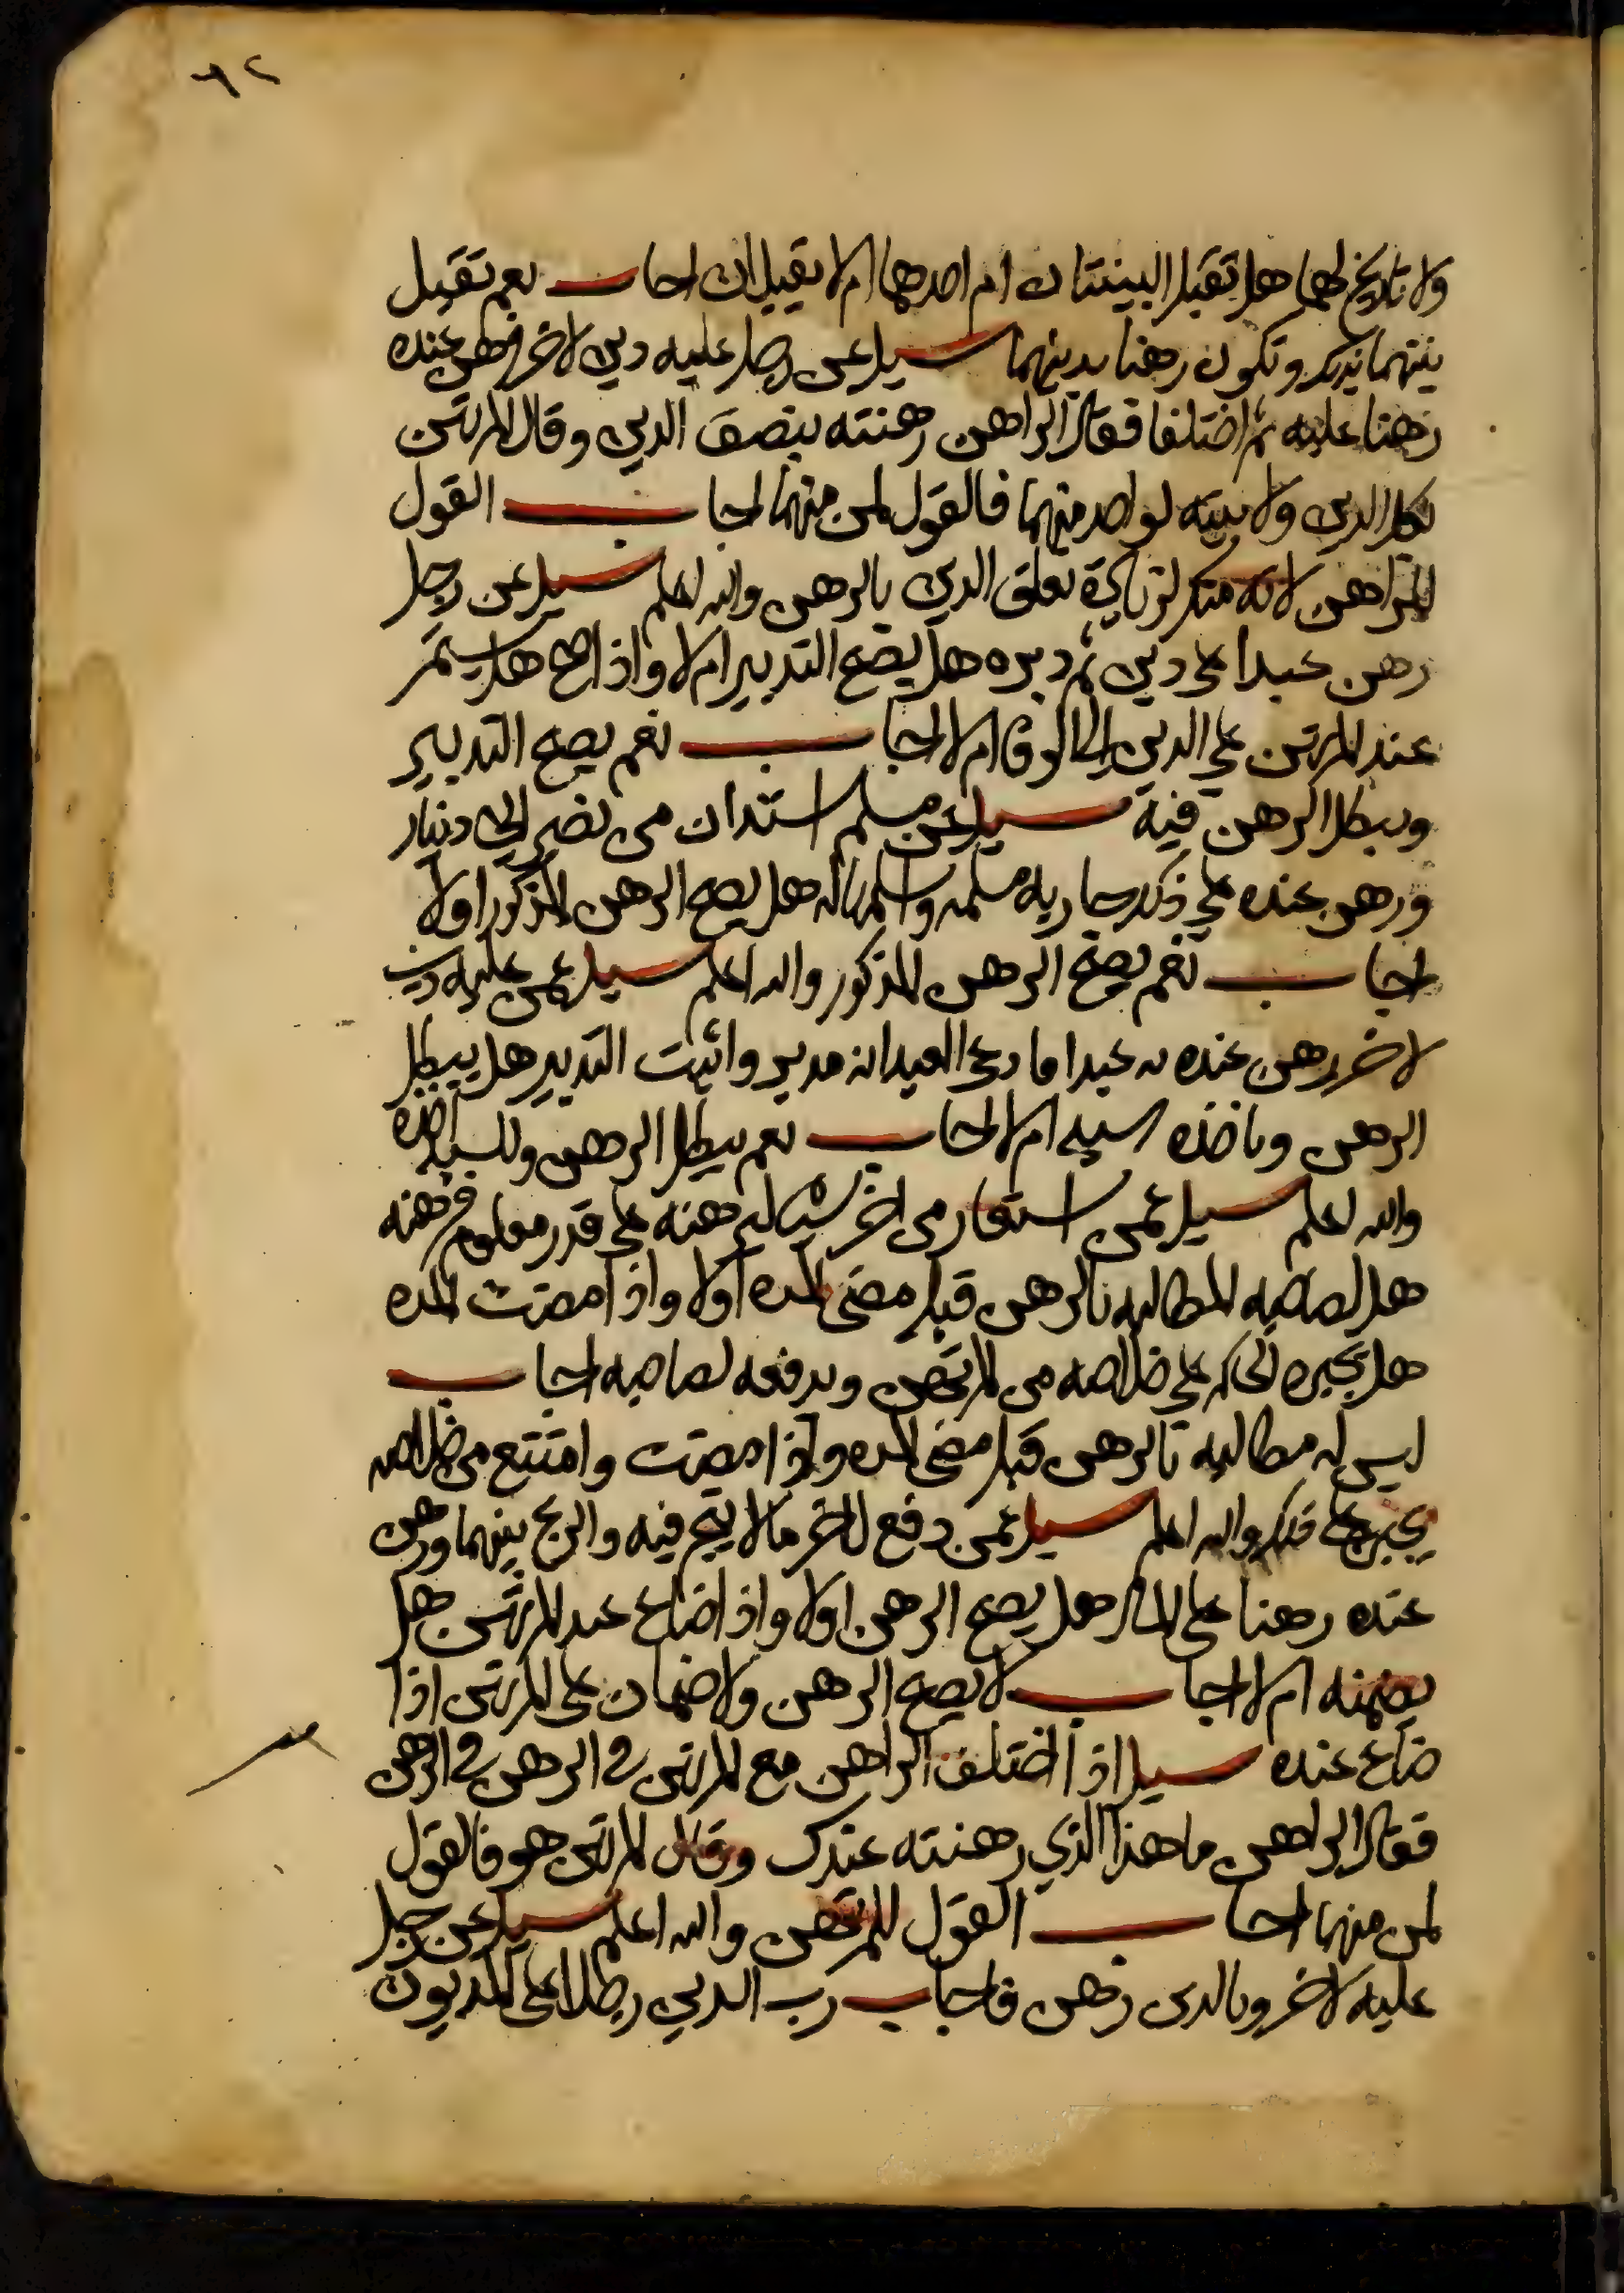 ٦٢
ولا تاريخ لهما هل تقبل البينتان ام احدهما ام لا يقبلان اجاب نعم تقبل
بينتهما بذلك وتكون رهنا بدينهما سيل عن رجل عليه دين لاخر فرهن عنده
رهنا عليه ثم اختلفا فقال الراهن رهنته بنصف الدين وقال المرتهن
بكل الدين ولا بينه لواحد منهما فالقول لمن منهما اجاب القول
للراهن لانه منكر لزيادة تعلق الدين بالرهن والله اعلم سيل عن رجل
رهن عبدا على دين ثم دبره هل يصح التدبير ام لا واذا صح هل يستمر
عند المرتهن على الدين الى الوفا ام لا اجاب نعم يصح التدبير
ويبطل الرهن فيه سيل عن مسلم استدان من نصراني دينار
ورهن عنده على ذلك جاريه مسلمه وسلمها له هل يصح الرهن المذكور اولا
اجاب نعم يصح الرهن المذكور والله اعلم سيل عمن عليه دين
لاخر رهن عنده به عبدا فادعى العبد انه مدبر واثبت التدبير هل يبطل
الرهن وياخذه سيده ام لا اجاب نعم يبطل الرهن وللسيد اخذه
والله اعلم سيل عمن استعار من اخر شيا ليرهنه على قدر معلوم فرهنه
هل لصاحبه المطالبه بالرهن قبل مضى المده اولا واذا مضت المده
هل يجبره الحاكم على خلاصه من المرتهن ويدفعه لصاحبه اجاب
ليس له مطالبه بالرهن قبل مضى المده واذا مضت وامتنع من خلاصه
يجبر على ذلك والله اعلم سيل عمن دفع لاخر مالا يتجر فيه والربح بينهما ورهن
عنده رهنا على المال هل يصح الرهن اولا واذا ضاع عند المرتهن هل
يضمنه ام لا اجاب لا يصح الرهن ولا ضمان على المرتهن اذا
ضاع عنده سيل اذا اختلف الراهن مع المرتهن في الرهن في الرهن
فقال الراهن ما هذا الذي رهنته عندك وقال المرتهن هو فالقول
لمن منهما اجاب القول للمرتهن والله اعلم سيل عن رجل
عليه لاخر وبالدين رهن فاجاب رب الدين رجلا على المديون